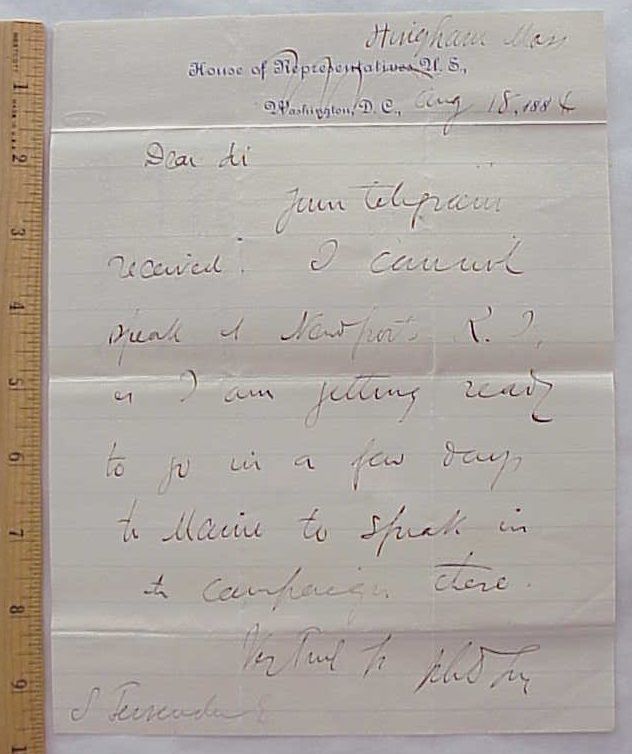 Hingham Mass
House of Representatives U. S.,
Washington, D. C., Aug 18, 1884
Dear Sir
Your telegram
received. I cannot
speak at Newport R. I.
as I am getting ready
to go in a few days
to Maine to speak in
the campaign there.
Very Truly Yrs John D Long